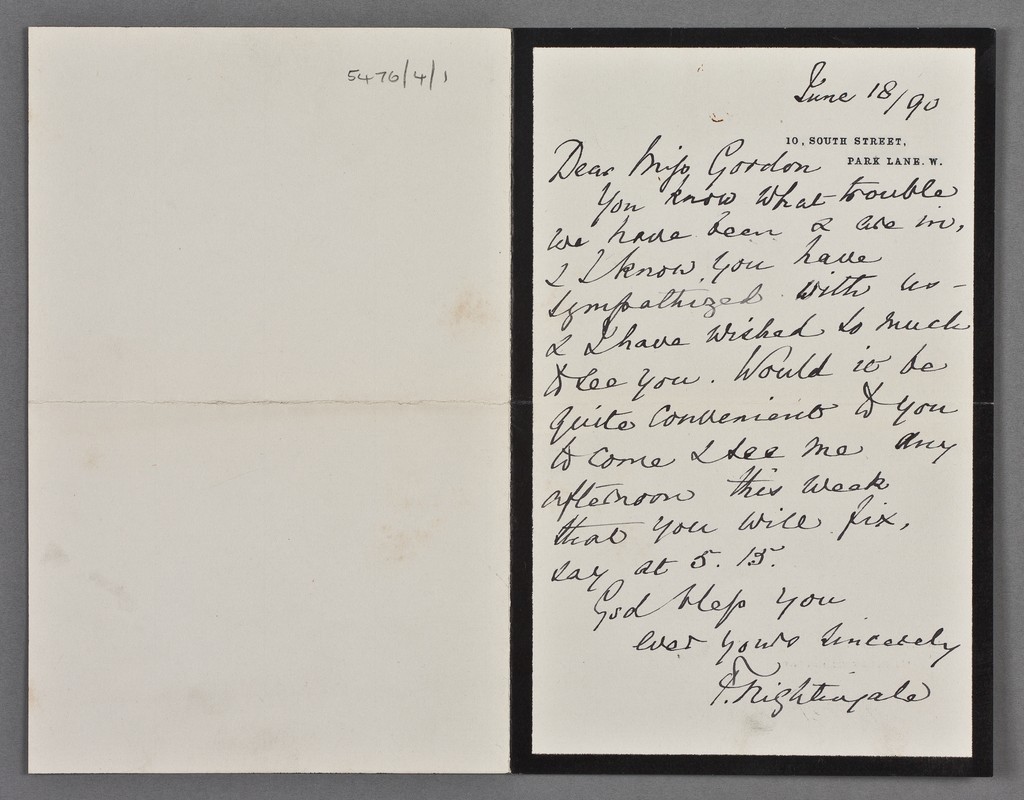 5476/4/1
June 18/90
10, SOUTH STREET,
PARK LANE. W.
Dear Miss Gordon
You know what trouble
we have been & are in,
& I know you have
sympathized with us -
& I have wished so much
to see you. Would it be
quite convenient to you
to come & see me any
afternoon this week
that you will fix,
say at 5.15.
God bless you
ever yours sincerely
F. Nightingale